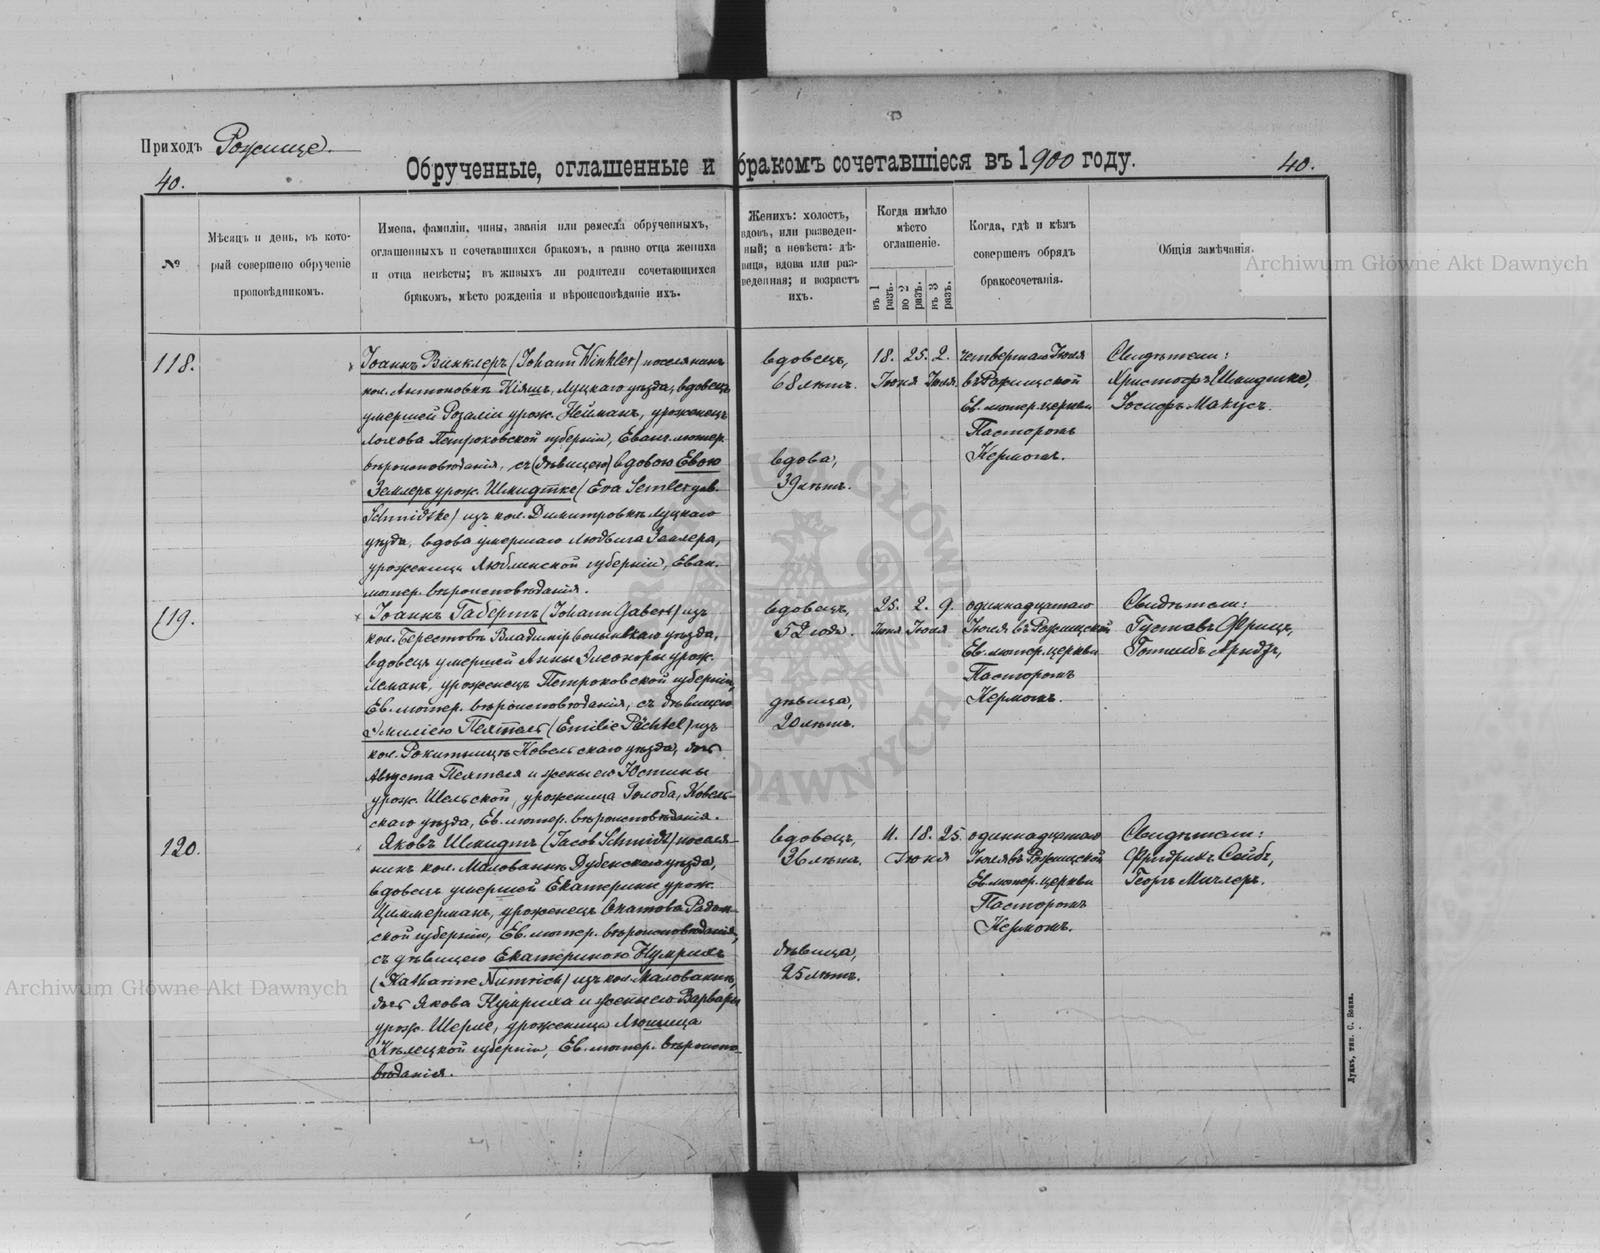 Приходъ Рожище
40.
Обрученные, оглашенные и бракомъ сочетавшіеся въ 1900 году.
40.
№
Мѣсяцъ и день, въ кото-
рый совершено обрученіе
проповѣдникомъ.
Имена, фамиліи, чины, званія или ремесла обрученныхъ,
оглашенныхъ и сочетавшихся бракомъ, а равно отца жениха
и отца невѣсты; въ живыхъ ли родители сочетающихся
бракомъ, мѣсто рожденія и вѣроисповѣданіе ихъ.
Женихъ: холостъ,
вдовъ, или разведен-
ный; а невѣста: дѣ-
вица, вдова или раз-
веденная; и возрастъ
ихъ.
Когда имѣло
мѣсто
оглашеніе.
въ 1 разъ.
во 2 разъ.
въ 3 разъ.
Когда, гдѣ и кѣмъ
совершенъ обрядъ
бракосочетанія.
Общія замѣчанія.
Archiwum Główne Akt Dawnych
118.
Іоаннъ Винклеръ (Johann Winkler) поселянинъ
кол. Антоновки Кіяшъ, Луцкаго уѣзда, вдовецъ
умершей Розаліи урож. Нейманъ, уроженецъ
Петроковской губерніи, Еванг. лютер.
вѣроисповѣданія, съ (дѣвицею) вдовою Евою
Земмлеръ урож. Шмидтке (Eva Semler geb.
Schmidtke) изъ кол. Димитровки Луцкаго
уѣзда, вдова умершаго Людвига Землера,
уроженица Люблинской губерніи, Еван.
лютер. вѣроисповѣданія.
вдовецъ,
68 лѣтъ.
вдова,
39 лѣтъ.
18. 25. 2.
Іюня Іюля
четвертаго Іюля
въ Рожищской
Ев. лютер. церкви
Пасторомъ
Кермомъ.
Свидѣтели:
Христофъ Шмидтке,
Іосифъ Макусъ.
119.
Іоаннъ Габертъ (Johann Gabert) изъ
кол. Берестовъ Владимірволынскаго уѣзда,
вдовецъ умершей Анны Элеоноры урож.
Леманъ, уроженецъ Петроковской губерніи,
Ев. лютер. вѣроисповѣданія, съ дѣвицею
Эмиліею Пехтель (Emilie Pächtel) изъ
кол. Рокитницъ Ковельскаго уѣзда, дочь
Августа Пехтеля и жены его Юстины
урож. Шельской, уроженица Голоба, Ковель-
скаго уѣзда, Ев. лютер. вѣроисповѣданія.
вдовецъ,
52 года.
дѣвица,
20 лѣтъ.
25. 2. 9.
Іюня Іюля
одиннадцатаго
Іюля въ Рожищской
Ев. лютер. церкви
Пасторомъ
Кермомъ.
Свидѣтели:
Густавъ Фрицъ,
Готлибъ Арндтъ,
120.
Яковъ Шмидтъ (Jacob Schmidt) поселя-
нинъ кол. Малованки Дубенскаго уѣзда,
вдовецъ умершей Екатерины урож.
Циммерманъ, уроженецъ Опатова Радом-
ской губерніи, Ев. лютер. вѣроисповѣданія,
съ дѣвицею Екатериною Нумрихъ
(Katharine Numrich) изъ кол. Малованки,
дочь Якова Нумриха и жены его Варвары
урож. Шерле, уроженица
Кѣлецкой губерніи, Ев. лютер. вѣроиспо-
вѣданія.
вдовецъ,
36 лѣтъ.
дѣвица,
25 лѣтъ.
11. 18. 25.
Іюня
одиннадцатаго
Іюля въ Рожищской
Ев. лютер. церкви
Пасторомъ
Кермомъ.
Свидѣтели:
Фридрихъ Сейбъ,
Георгъ Миллеръ.
Archiwum Główne Akt Dawnych
Луцкъ, тип. С. Бонка.